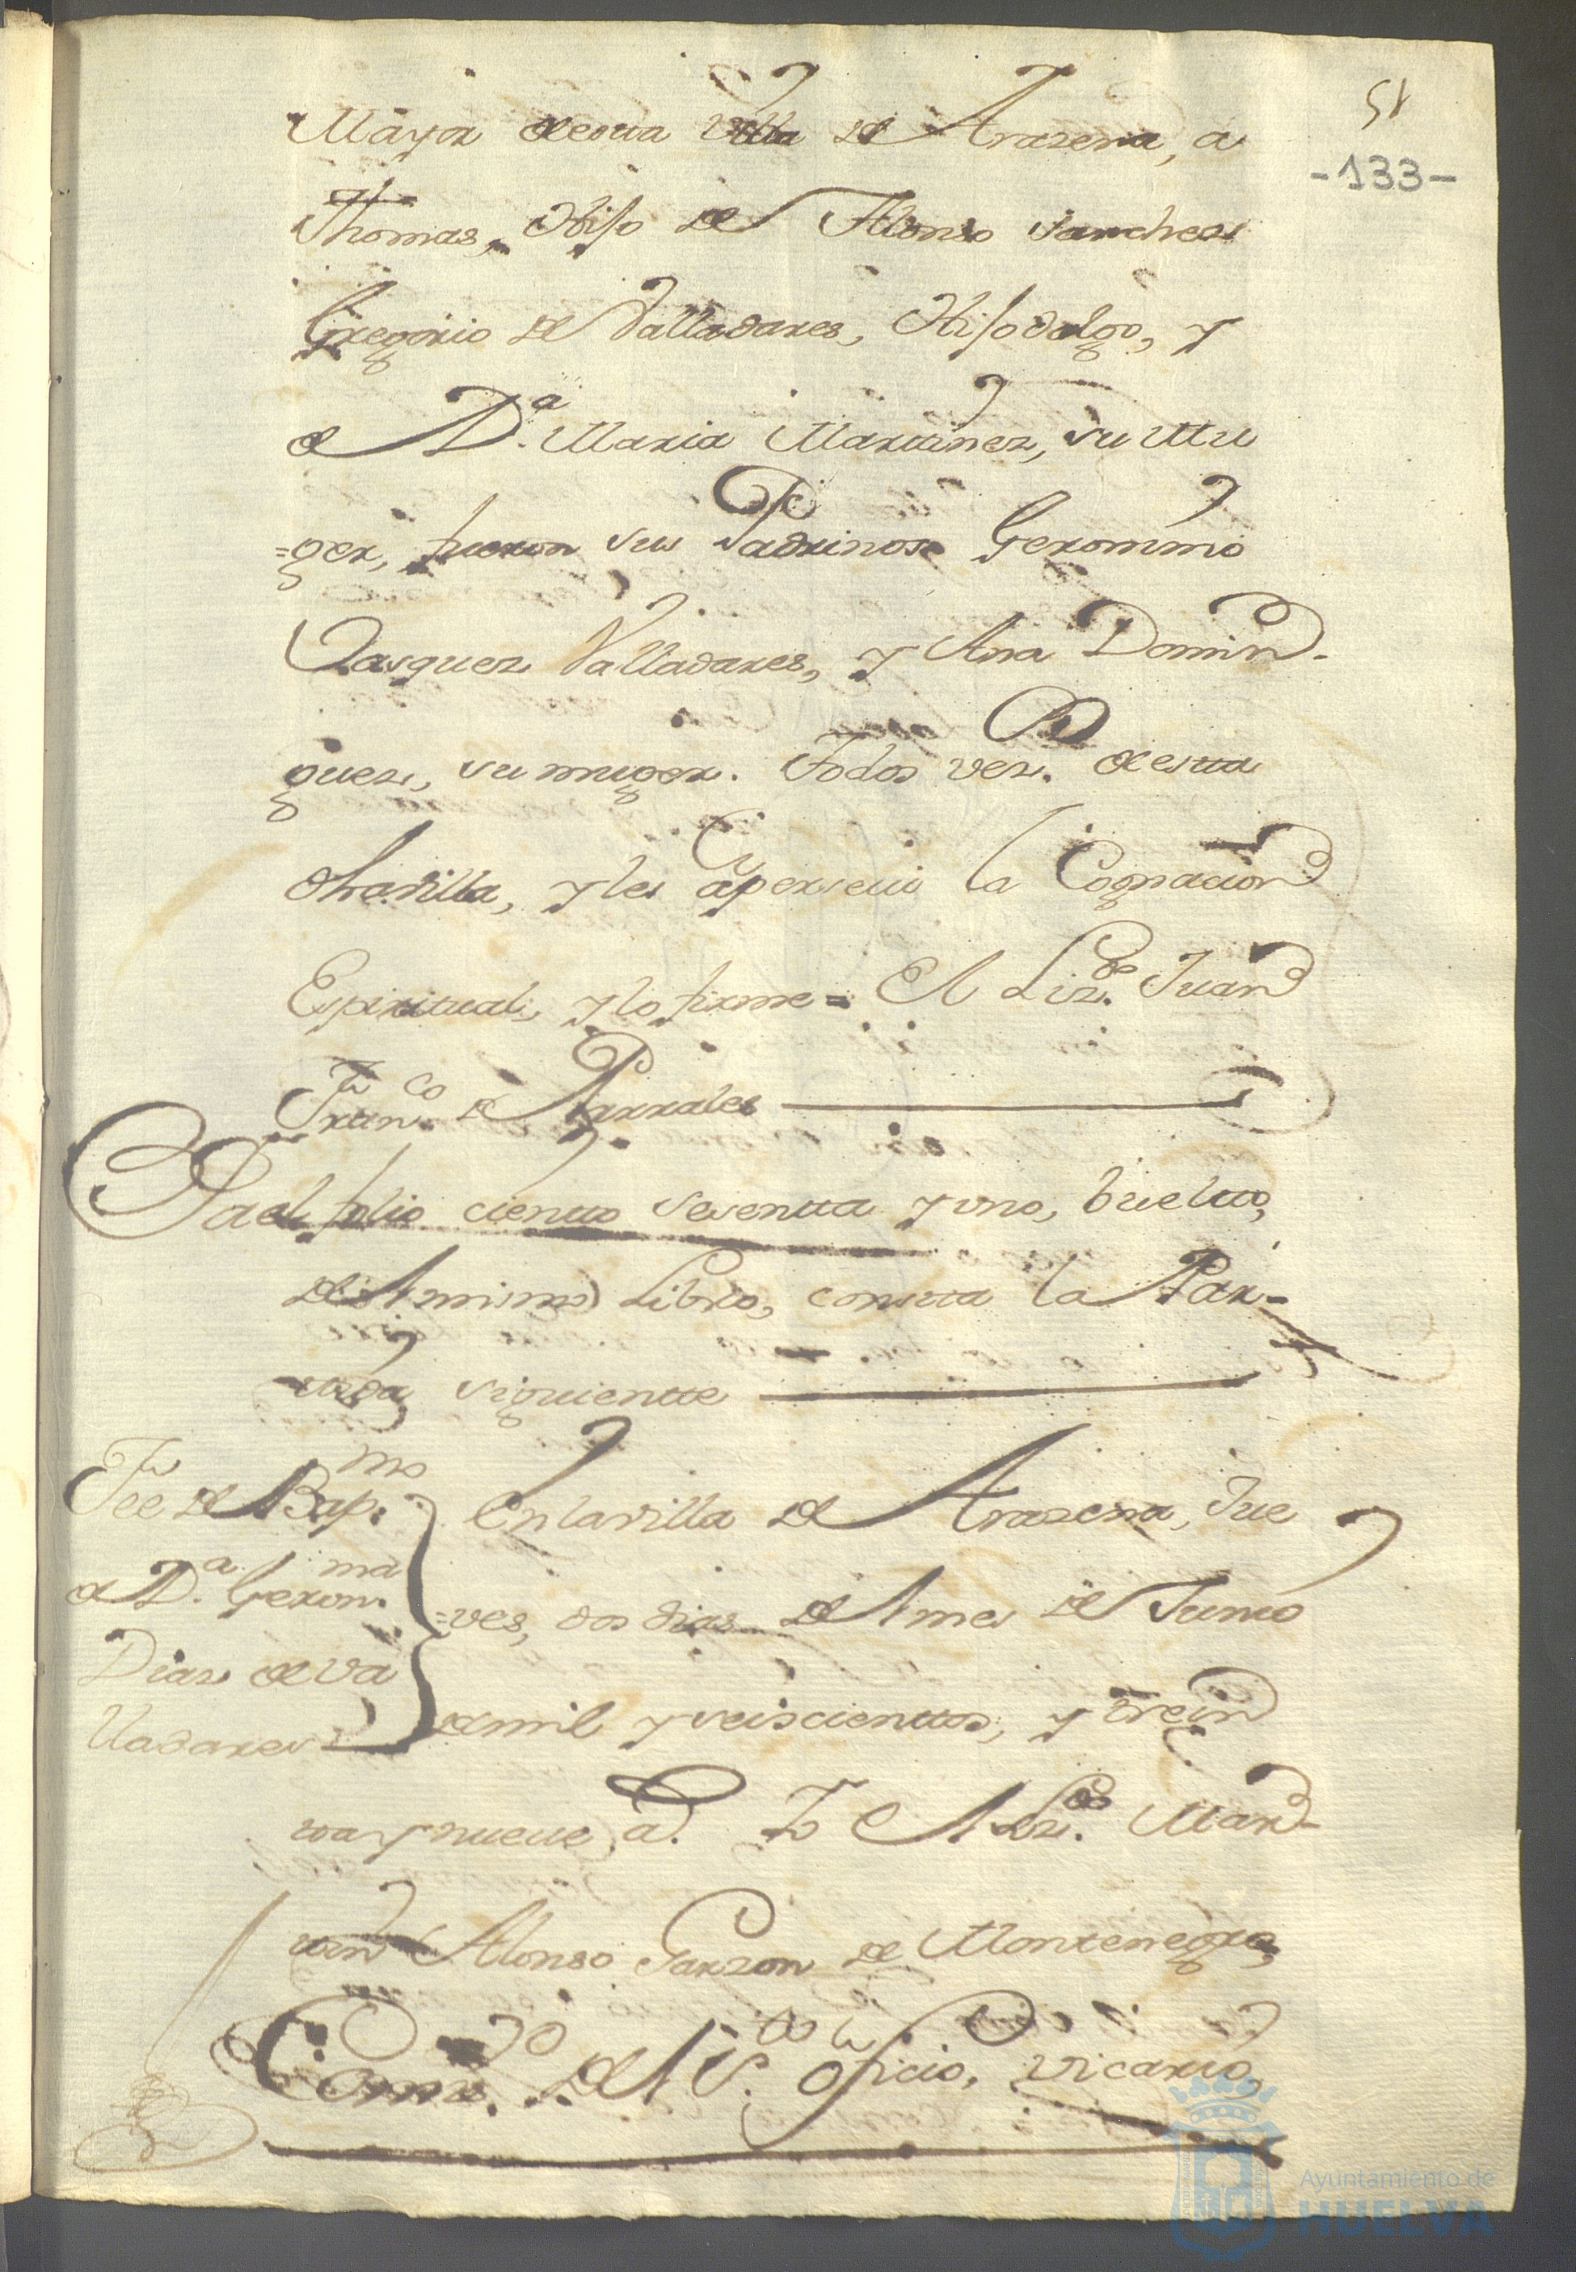 51
-133-
Mayor desta Villa de Arazena, a
Thomas, Hijo de Alonso Sanches
Gregorio de Valladares, Hijodalgo, y
de D.ª Maria Martinez, su Mu
=ger, fueron sus Padrinos Geronimo
Vasquez Valladares, y Ana Domin-
guez, su muger. Todos vez.ˢ desta
dha villa, y les apersevi la Cognacion
Espiritual, y lo firme = El Liz.do Juan
Fran.co de Parrales
Y a el folio ciento sesentta y uno, buelto,
del mismo Libro, constta la Par-
tida siguientte
Fee de Bap.mo
de D.ª Geron.ma
Diaz de Va
lladares
En la villa de Arazena, Jue
=ves, dos dias del mes de Junio
de mil y seiscienttos, y trein
ta y nueve a.s Yo El Liz.do Mar-
tin Alonso Garzon de Montenegro,
Comis.o del S.to oficio, Vicario,
Ayuntamiento de
HUELVA